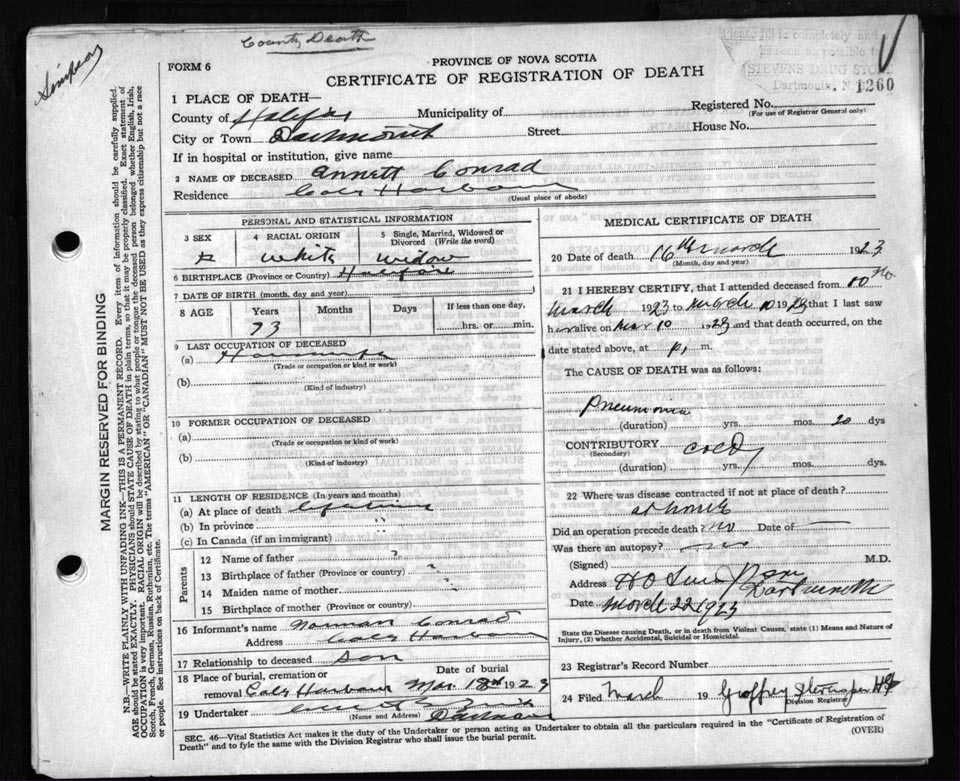 County Death
Simpson
FORM 6
PROVINCE OF NOVA SCOTIA
CERTIFICATE OF REGISTRATION OF DEATH
is completely and
soon as possible to
STEVENS DRUG STORE
Dartmouth, N.S.
1260
1 PLACE OF DEATH—
County of Halifax Municipality of
Registered No.
(For use of Registrar General only)
City or Town Dartmouth Street House No.
If in hospital or institution, give name
2 NAME OF DECEASED Annett Conrad
Residence Cole Harbour
(Usual place of abode)
PERSONAL AND STATISTICAL INFORMATION
3 SEX
F
4 RACIAL ORIGIN
White
5 Single, Married, Widowed or Divorced (Write the word)
Widow
6 BIRTHPLACE (Province or Country) Halifax
7 DATE OF BIRTH (month, day and year)
8 AGE Years Months Days If less than one day,
73 hrs. or min.
9 LAST OCCUPATION OF DECEASED
(a) Housewife
(Trade or occupation or kind or work)
(b)
(Kind of industry)
10 FORMER OCCUPATION OF DECEASED
(a)
(Trade or occupation or kind of work)
(b)
(Kind of industry)
11 LENGTH OF RESIDENCE (In years and months)
(a) At place of death lifetime
(b) In province "
(c) In Canada (if an immigrant) "
Parents
12 Name of father ?
13 Birthplace of father (Province or country) "
14 Maiden name of mother "
15 Birthplace of mother (Province or country) "
16 Informant's name Norman Conrad
Address Cole Harbour
17 Relationship to deceased Son
18 Place of burial, cremation or Date of burial
removal Cole Harbour Mar 18th 1923
19 Undertaker
(Name and Address) Dartmouth
MEDICAL CERTIFICATE OF DEATH
20 Date of death 16th March 1923
(Month, day and year)
21 I HEREBY CERTIFY, that I attended deceased from
March 1923 to March 10 1923 that I last saw
her alive on Mar 10 1923 and that death occurred, on the
date stated above, at p. m.
The CAUSE OF DEATH was as follows:
Pneumonia
(duration) yrs. mos. 20 dys
CONTRIBUTORY cold
(Secondary)
(duration) yrs. mos. dys.
22 Where was disease contracted if not at place of death?
at home
Did an operation precede death? no Date of —
Was there an autopsy? no
(Signed) M.D.
Address Dartmouth
Date March 22 1923
State the Disease causing Death, or in death from Violent Causes, state (1) Means and Nature of
Injury, (2) whether Accidental, Suicidal or Homicidal.
23 Registrar's Record Number
24 Filed March 19 Geoffrey
Division Registrar
SEC. 46—Vital Statistics Act makes it the duty of the Undertaker or person acting as Undertaker to obtain all the particulars required in the "Certificate of Registration of
Death" and to fyle the same with the Division Registrar who shall issue the burial permit.
(OVER)
MARGIN RESERVED FOR BINDING
N.B.—WRITE PLAINLY WITH UNFADING INK—THIS IS A PERMANENT RECORD. Every item of information should be carefully supplied.
AGE should be stated EXACTLY. PHYSICIANS should STATE CAUSE OF DEATH in plain terms, so that it may be properly classified. Exact statement of
OCCUPATION is very important. RACIAL ORIGIN will be described by stating to what people or tongue the deceased person belonged whether English, Irish,
Scotch, French, German, Russian, Ruthenian, etc. The terms "AMERICAN" OR "CANADIAN" MUST NOT BE USED as they express citizenship but not a race
or people. See instructions on back of Certificate.